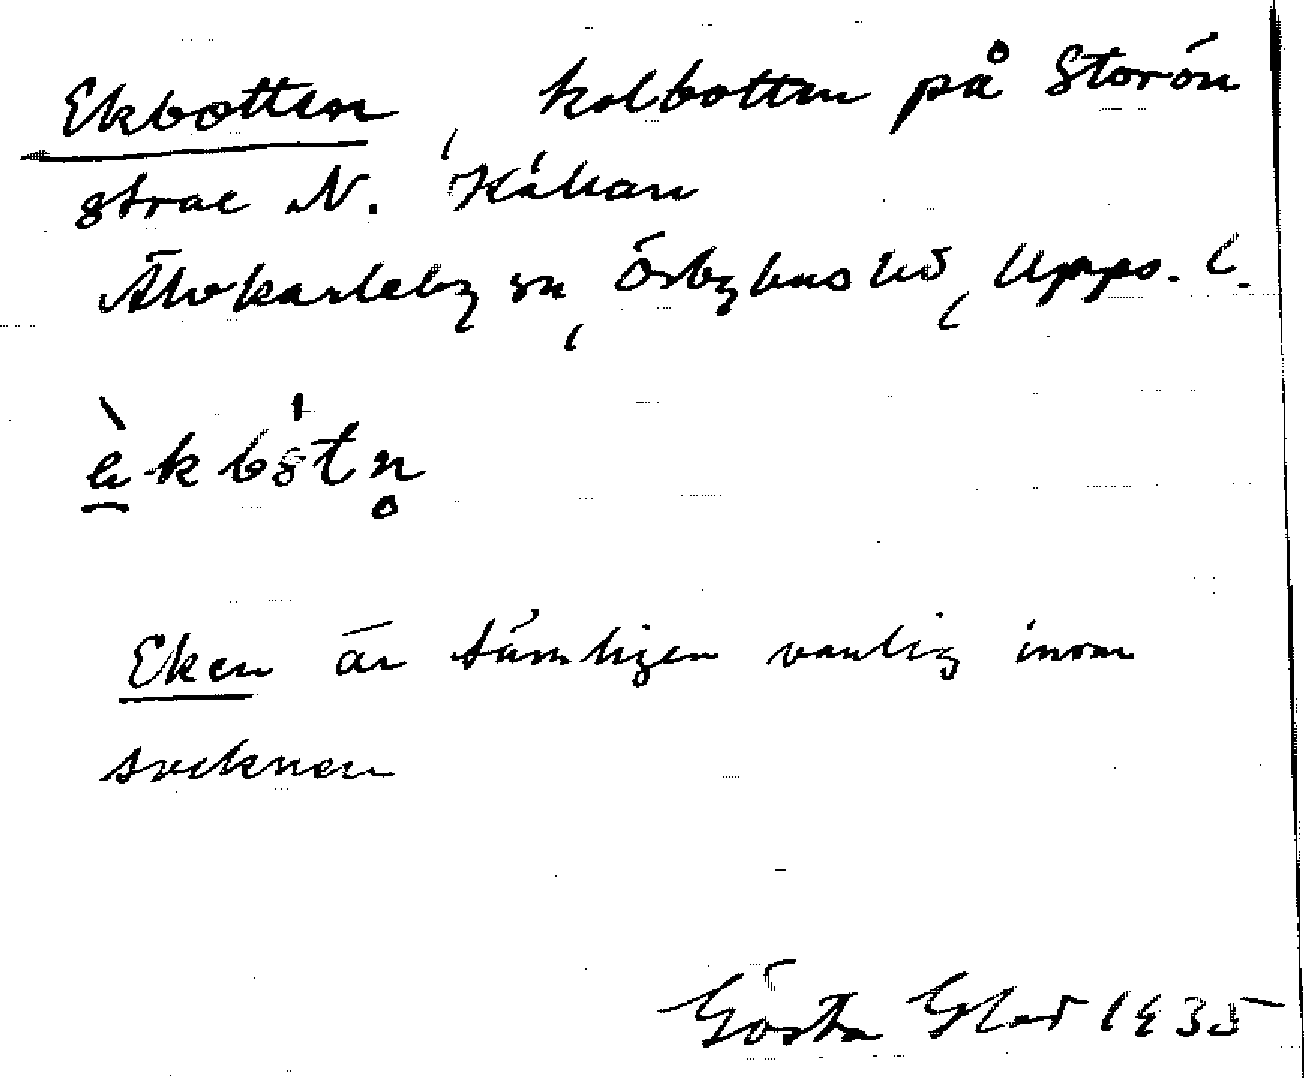 Ekbotten, kolbotten på Storön
strax N. Kálkan
Älvkarleby sn, Örbyhus hd, Upps. l.
èkbótn̥
Eken är tämligen vanlig inom
socknen
Gösta Glad 1935